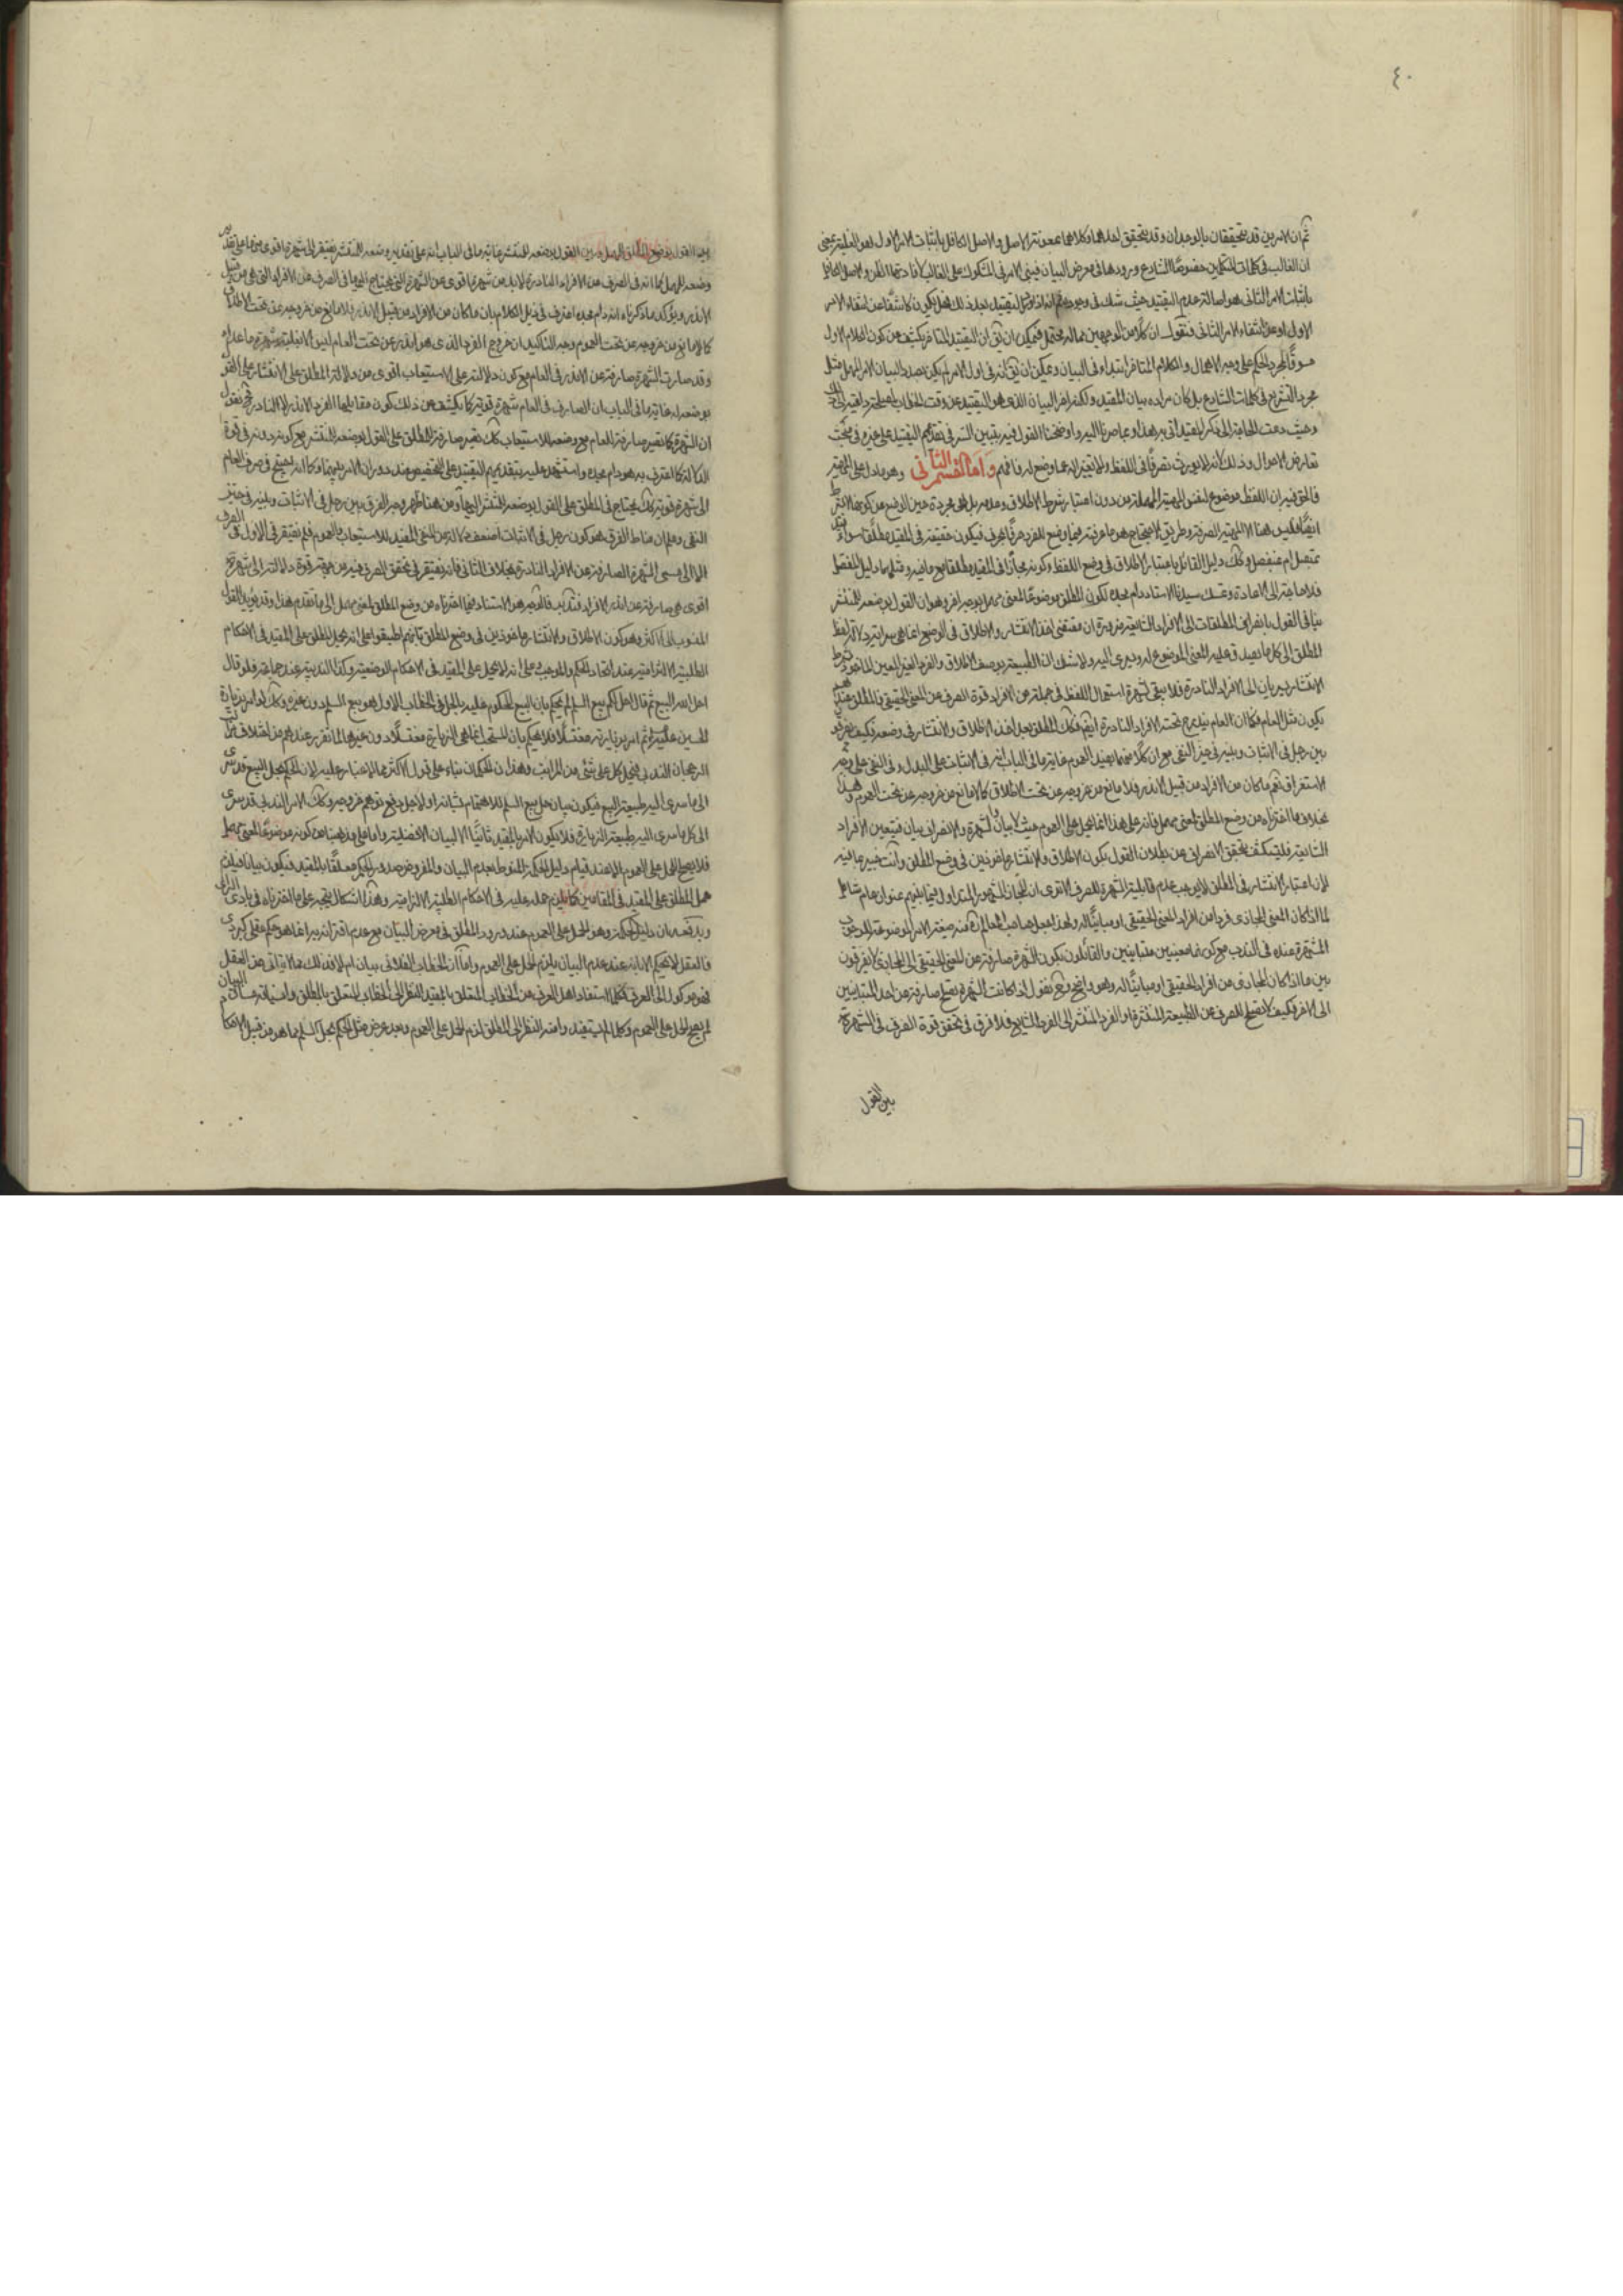 ٤٠
ثم ان الامرين قد يتحققان بالوجدان وقد يتحقق احدهما وكلاهما بمعونة الاصل والاصل الكافل باثبات الامر الاول هو الغلبة يعنى
ان الغالب فى كلمات المتكلمين خصوصًا الشارع ورودها فى معرض البيان فيبنى الامر فى المشكوك على الغالب لافادتها الظن والاصل الكافل
باثبات الامر الثانى هو اصالة عدم التقييد حيث شك فى وجوده ثم انه اذا التقييد بعد ذلك فهل يكون كاشفًا عن انتفاء الامر
الاول او عن انتفاء الامر الثانى فنقول ان كلًا من الوجهين مما له محتمل فيمكن ان يق ان التقييد المتاخر يكشف عن كون الكلام الاول
مسوقًا لمجرد الحكم على وجه الاهمال والكلام المتاخر ابتداء فى البيان ويمكن ان يق انه فى اول الامر لم يكن بصدد البيان الامر المهمل مثل
مجرد التشريع فى كلمات الشارع بل كان مراده بيان المقيد ولكنه اخر البيان الذى هو التقييد عن وقت الخطاب لمصلحة داعية الى ذلك
وحيث دعت الحاجة الى ذكر المقيد اتى به هذا وعباصرنا اليه واوضحنا القول فيه يتبين السر فى تقديم التقييد على غيره فى مبحث
تعارض الاحوال وذلك لانه لا يورث تصرفًا فى اللفظ ولا تغييرا له عما وضع له فافهم واما القسم الثانى وهو ما دل على المهية
فالحق فيه ان اللفظ موضوع لنفس المهية المهملة من دون اعتبار شرط الاطلاق وعدمه بل هى مجردة حين الوضع عن كونها لا بشرط
ايضًا فليس هنا الا المهية الصرفة وطريق الاحتجاج هو ما عرفته فيما وضع للفرد حرفًا بحرف فيكون حقيقة فى المقيد مطلقًا سواء
بمتصل ام بمنفصل وكك دليل القائل باعتبار الاطلاق فى وضع اللفظ وكونه مجازًا فى المقيد مطلقا مع ما فيه ومثلهما دليل المفصل
فلا حاجة الى الاعادة وتمسك سيدنا الاستاد دام مجده لكون المطلق موضوعًا لمعنى مهمل بوجه اخر وهو ان القول بوضعه للمنتشر
ينافى القول بانصراف المطلقات الى الافراد الشايعة ضرورة ان مقتضى اخذ الانتشار والاطلاق فى الوضع انما هى سراية دلالة لفظ
المطلق الى كل ما يصدق عليه المعنى الموضوع له ويسرى اليه ولا شك ان الطبيعة بوصف الاطلاق والفرد الغير المعين الماخوذ بشرط
الانتشار يسريان الى الافراد النادرة فلا يبقى لشهرة استعمال اللفظ فى جملة من الافراد قوة الصرف عن المعنى الحقيقى فالمطلق عندهم
يكون مثل العام فكما ان العام يندرج تحته الافراد النادرة ايضا فكك المطلق بعد اخذ الاطلاق والانتشار فى وضعه وكيف يفرق
بين رجل فى الاثبات وبينه فى حيز النفى مع ان كلًا منهما يفيد العموم غاية ما فى الباب انه فى الاثبات على البدل وفى النفى على وجه
الاستغراق نعم ما كان من الافراد من قبيل الاندر فلا مانع من خروجه عن تحت الاطلاق كالا مانع من خروجه عن تحت العموم وهذا
بخلاف ما اخترناه من وضع المطلق لمعنى مهمل فانه على هذا انما يحمل على العموم حيث لا بيان والشهرة والانصراف بيان فيتعين الافراد
الشايعة فليكشف تحقق الانصراف عن بطلان القول بكون الاطلاق والانتشار ماخوذين فى وضع المطلق وانت خبير بما فيه
لان اعتبار الانتشار فى المطلق لا يوجب عدم قابلية الشهرة للصرف الا ترى ان المجاز المشهور المتداول فيما بينهم عنوان عام شامل
لما اذا كان المعنى المجازى فردا من افراد المعنى الحقيقى او مباينًا له ولهذا جعل صاحب المعالم منه صيغة الامر الموضوعة للوجوب
المشتهرة عنده فى الندب مع كونهما معنيين متباينين والقائلون بكون الشهرة صارفة عن المعنى الحقيقى الى المجازى لا يفرقون
بين ما اذا كان المجازى من افراد الحقيقى او مباينًا له وهو واضح وح نقول اذا كانت الشهرة تصلح صارفة عن احد المتباينين
الى الاخر فكيف لا تصلح للصرف عن الطبيعة المنتشرة او الفرد المنتشر الى الفرد الشايع فلا فرق فى تحقق قوة الصرف فى الشهرة
بين القول
بين القول بوضع المطلق للمهمل وبين القول بوضعه للمنتشر غاية ما فى الباب انه على تقدير وضعه للمنتشر يفتقر الى شهرة اقوى منها على تقدير
وضعه للمهمل كما انه فى الصرف عن الافراد النادرة لا بد من شهرة اقوى من الشهرة التى يحتاج اليها فى الصرف عن الافراد التى هى من قبيل
الاندر ويؤكد ما ذكرناه انه دام مجده اعترف فى ذيل الكلام بان ما كان من الافراد من قبيل الاندر فلا مانع من خروجه عن تحت الاطلاق
كالا مانع من خروجه عن تحت العموم وجه التاكيد ان خروج الفرد الذى هو اندر عن تحت العام ليس الا لغلبة وشهرة ما عداه
وقد صارت الشهرة صارفة عن الاندر فى العام مع كون دلالته على الاستيعاب اقوى من دلالة المطلق على الانتشار على القول
بوضعه له غاية ما فى الباب ان الصارف فى العام شهرة قوية كما يكشف عن ذلك كون مقابلها الفرد الاندر لا النادر فح نقول
ان الشهرة كما تصير صارفة للعام مع وضعه للاستيعاب كك تصير صارفة للمطلق على القول بوضعه للمنتشر مع كونه دونه فى قوة
الدلالة كما اعترف به هو دام مجده واستشهد عليه بتقديمهم التقييد على التخصيص عند دوران الامر بينهما وكما انه يحتاج فى صرف العام
الى شهرة قوية كك يحتاج فى المطلق على القول بوضعه للمنتشر اليها ومن هنا ظهر وجه الفرق بين رجل فى الاثبات وبينه فى حيز
النفى وعلم ان مناط الفرق هو كون رجل فى الاثبات اضعف دلالة من المنفى المفيد للاستيعاب والعموم فلم يفتقر فى الاول فى الصرف
الا الى مسمى الشهرة الصارفة عن الافراد النادرة بخلاف الثانى فانه يفتقر فى تحقق الصرف فيه من جهة قوة دلالته الى شهرة
اقوى هى صارفة عن اندر الافراد فتدبر فالوجه هو الاستناد فيما اخترناه من وضع المطلق لمعنى مهمل الى ما تقدم هذا وقد يؤيد القول
المنسوب الى الاكثر وهو كون الاطلاق والانتشار ماخوذين فى وضع المطلق بانهم اطبقوا على انه يحمل المطلق على المقيد فى الاحكام
الطلبية الالزامية عند اتحاد الحكم والموجب وعلى انه لا يحمل على المقيد فى الاحكام الوضعية وكذا الندبية عند جماعة فلو قال
احل الله البيع ثم قال احل لكم بيع السلم لم يحكم بان البيع المحكوم عليه بالحل فى الخطاب الاول هو بيع السلم دون غيره وكك لو امر بزيارة
الحسين عليه السلام ثم امر بزيارته مغتسلًا فلا يحكم بان المستحب انما هى الزيارة مغتسلًا دون غيرها لما تقرر عندهم من اختلاف مراتب
الرجحان الندبى فيحمل كل على شئ من المراتب وهذان الحكمان بناء على قول الاكثر مما لا غبار عليه لان الحكم بحل البيع قد سرى
الى ما سرى اليه طبيعة البيع فيكون بيان حل بيع السلم للاهتمام بشانه او لاجل دفع توهم خروجه وكك الامر الندبى قد سرى
الى كل ما سرى اليه طبيعة الزيارة فلا يكون الامر بالمقيد ثانيًا الا لبيان الافضلية واما على مذهبنا من كونه موضوعًا لمعنى مهمل
فلا يصح الحمل على العموم الا عند قيام دليل الحكمة المنوط بعدم البيان والمفروض صدور الحكم معلقًا بالمقيد فيكون بيانا فيلزم
حمل المطلق على المقيد فى المقامين كما يلزم حمله عليه فى الاحكام الطلبية الالزامية وهذا اشكال يتجه على ما اخترناه فى بادى الراى
ويدفعه ان دليل الحكمة وهو الحمل على العموم عند ورود المطلق فى معرض البيان مع عدم اقترانه به انما هو حكم عقلى كبرى
فالعقل لا يحكم الا بانه عند عدم البيان يلزم الحمل على العموم واما ان الخطاب الفلانى بيان ام لا فذلك مما لا يتاتى من العقل
فهو موكول الى العرف فكلما استفاد اهل العرف من الخطاب المتعلق بالمقيد بالنظر الى الخطاب المتعلق بالمطلق وانسياقه مساق البيان
لم يصح الحمل على العموم وكلما لم يستفد وامنه النظر الى المطلق لزم الحمل على العموم وبعد عرض مثل الحكم بحل السلم مما هو من قبيل الاحكام